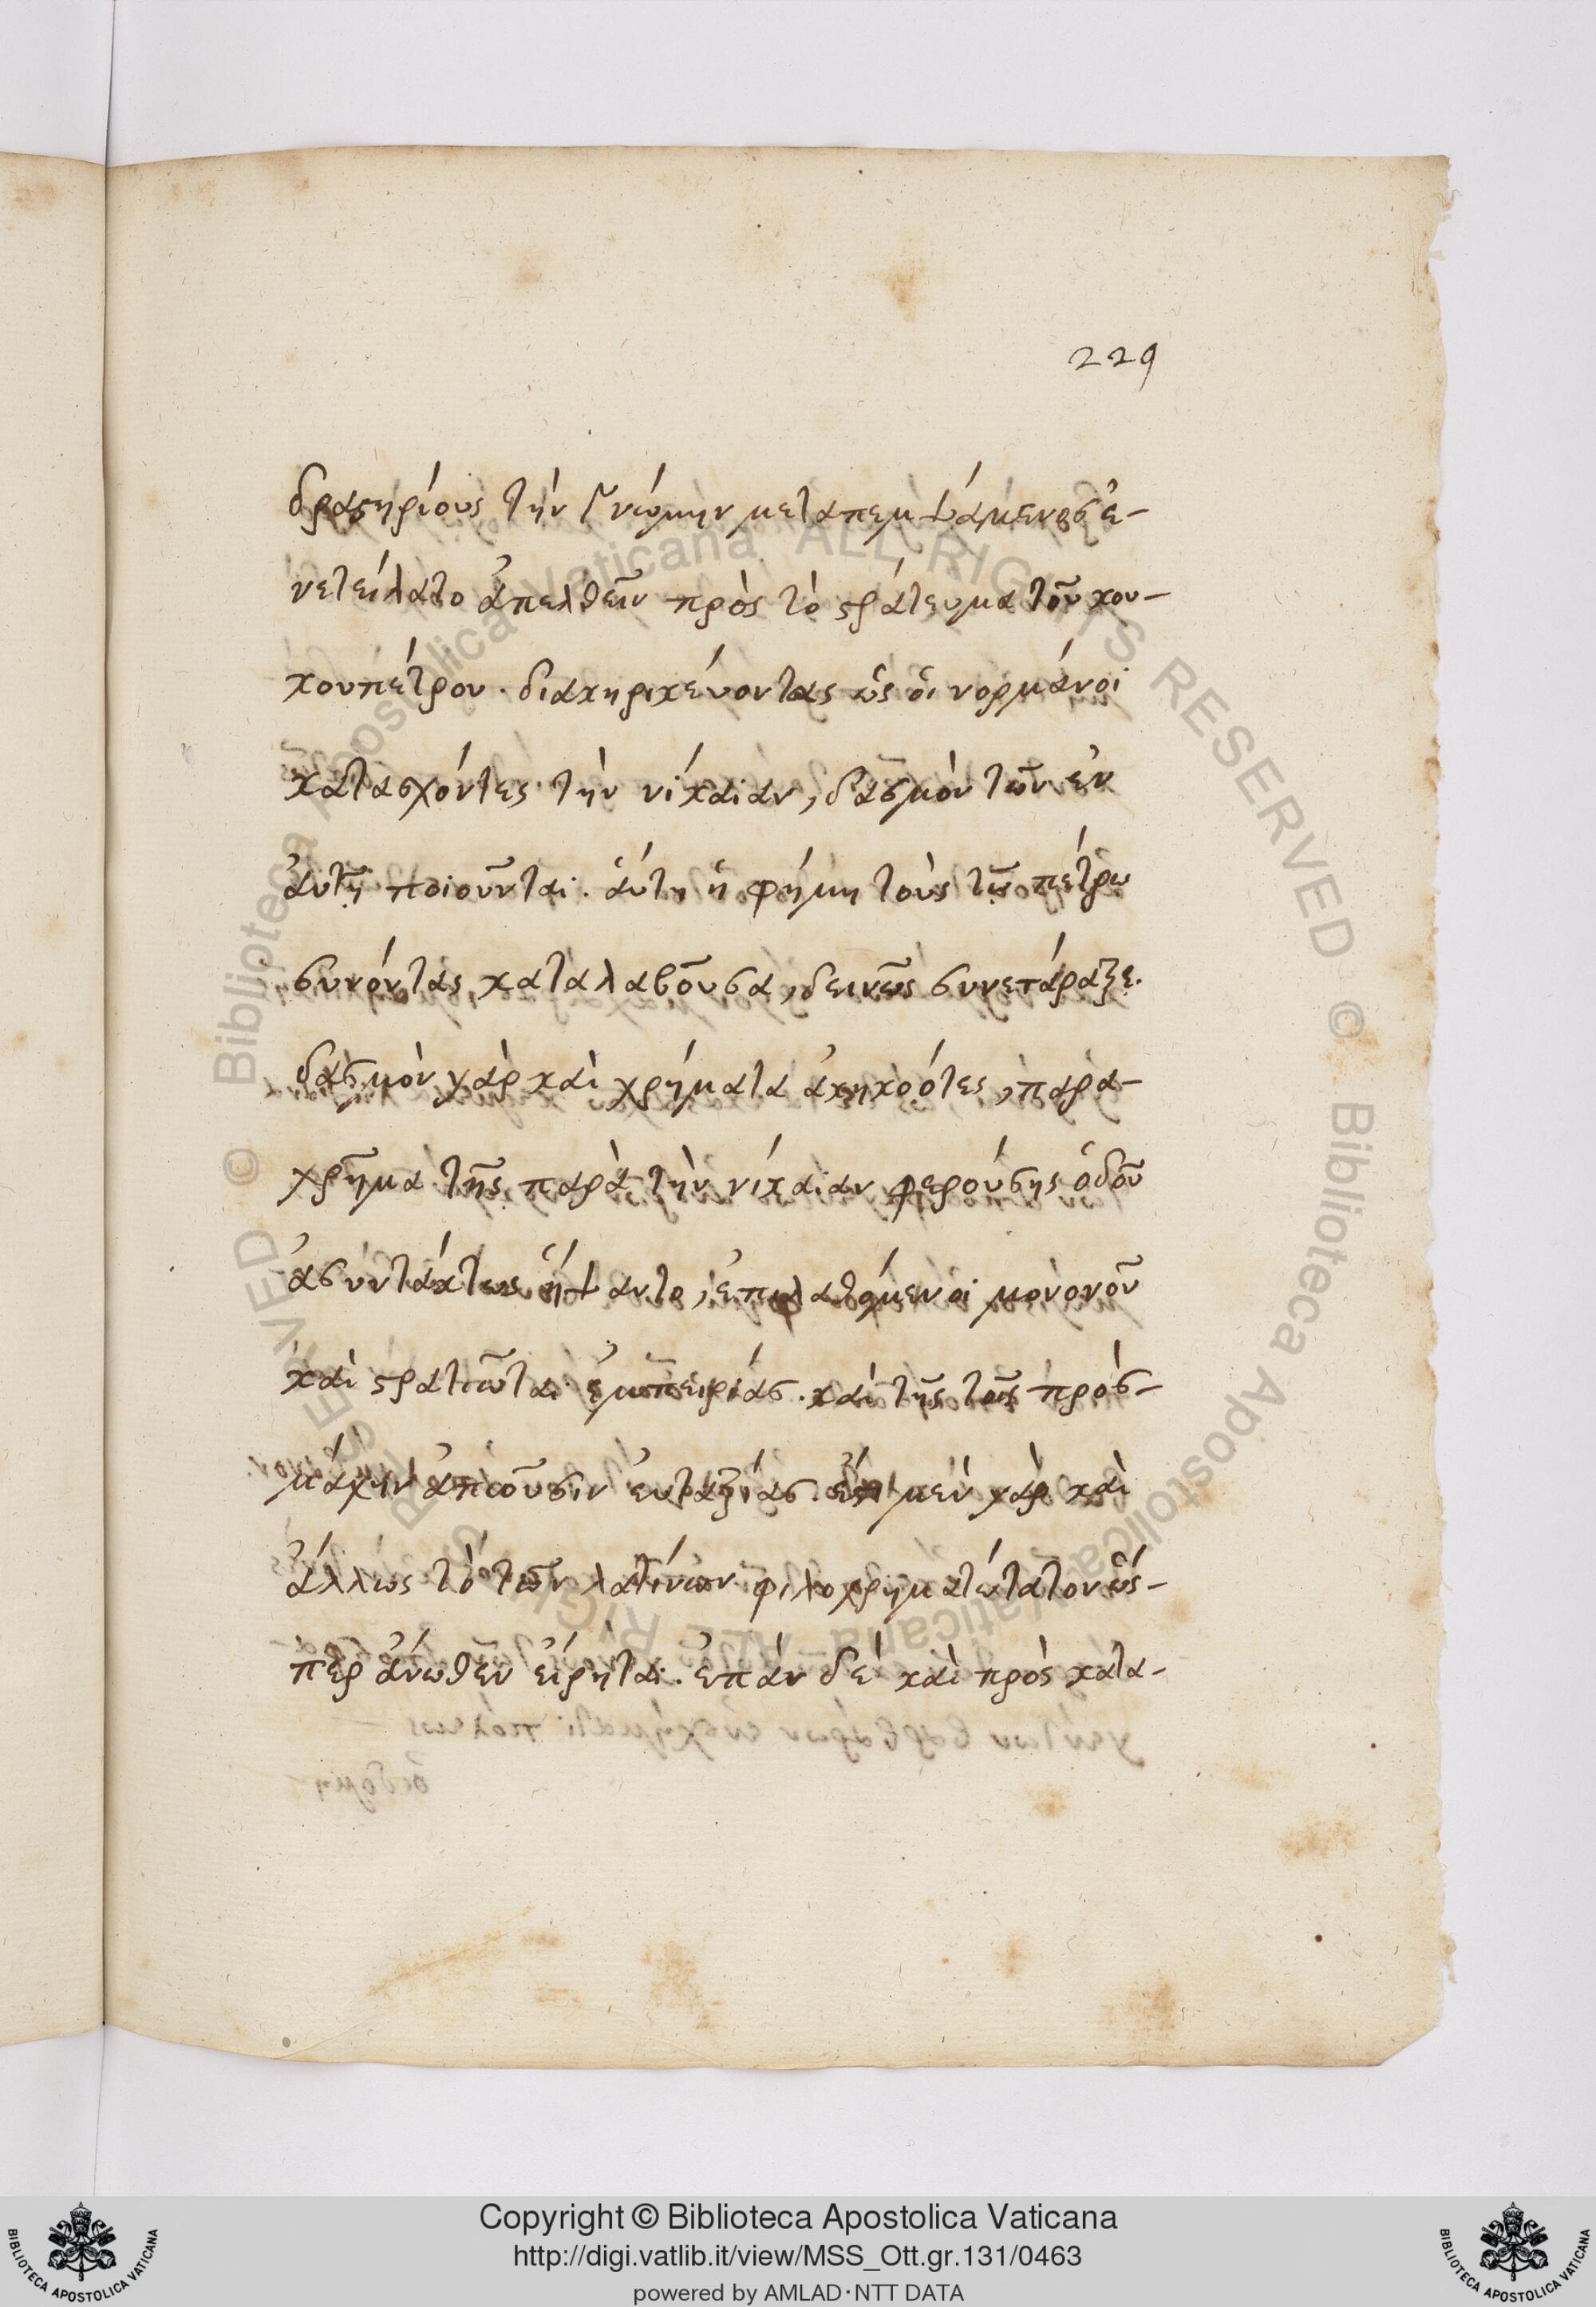 229
δραστηρίους τὴν γνώμην μεταπεμψάμενος ἐ-
νετείλατο ἀπελθεῖν πρὸς τὸ στράτευμα τοῦ κου-
κουπέτρου. διακηρικεύοντας ὡς οἱ νορμάνοι
κατασχόντες τὴν νίκαιαν, δασμὸν τῶν ἐν
ἀυτῇ ποιοῦνται. ἅυτη ἡ φήμη τοὺς τῷ πέτρω
συνόντας καταλαβοῦσα, δεινῶς συνετάραξε.
δασμὸν γὰρ καὶ χρήματα ἀκηκοότες, παρα-
χρῆμα τῆς παρὰ τὴν νίκαιαν φερούσης ὁδοῦ
ἀσυντάκτως ἥψαντο, ἐπιλαθόμενοι μονονοῦ
καὶ στρατιῶται ἐμπειρίας. καὶ τῆς τοῖς πρὸσ-
μάχην ἀπιοῦσιν ἐυταξίας. μὲν γὰρ καὶ
ἄλλως τὸ τῶν λατίνων φιλοχρηματώτατον ὥς-
περ ἄνωθεν ἐίρηται. ἐπὰν δὲ καὶ πρὸς κατα-
Copyright © Biblioteca Apostolica Vaticana
http://digi.vatlib.it/view/MSS_Ott.gr.131/0463
powered by AMLAD·NTT DATA
BIBLIOTECA APOSTOLICA VATICANA
BIBLIOTECA APOSTOLICA VATICANA